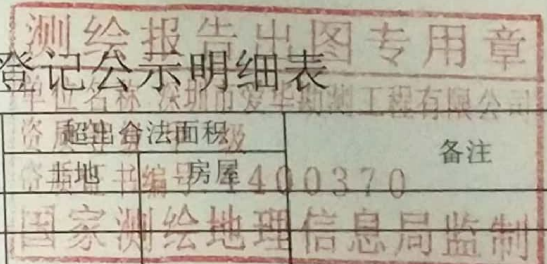 测绘报告出图专用章
登记公示明细表
单位名称 深圳市爱华勘测工程有限公司
超出合法面积
备注
土地 房屋
资质证书编号 4400370
国家测绘地理信息局监制